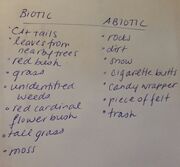 BIOTIC
• Cat tails
• leaves from
nearby trees
• red bush
• grass
• unidentified
weeds
• red cardinal
flower bush
• tall grass
• moss
ABIOTIC
• rocks
• dirt
• snow
• cigarette butts
• candy wrapper
• piece of felt
• trash